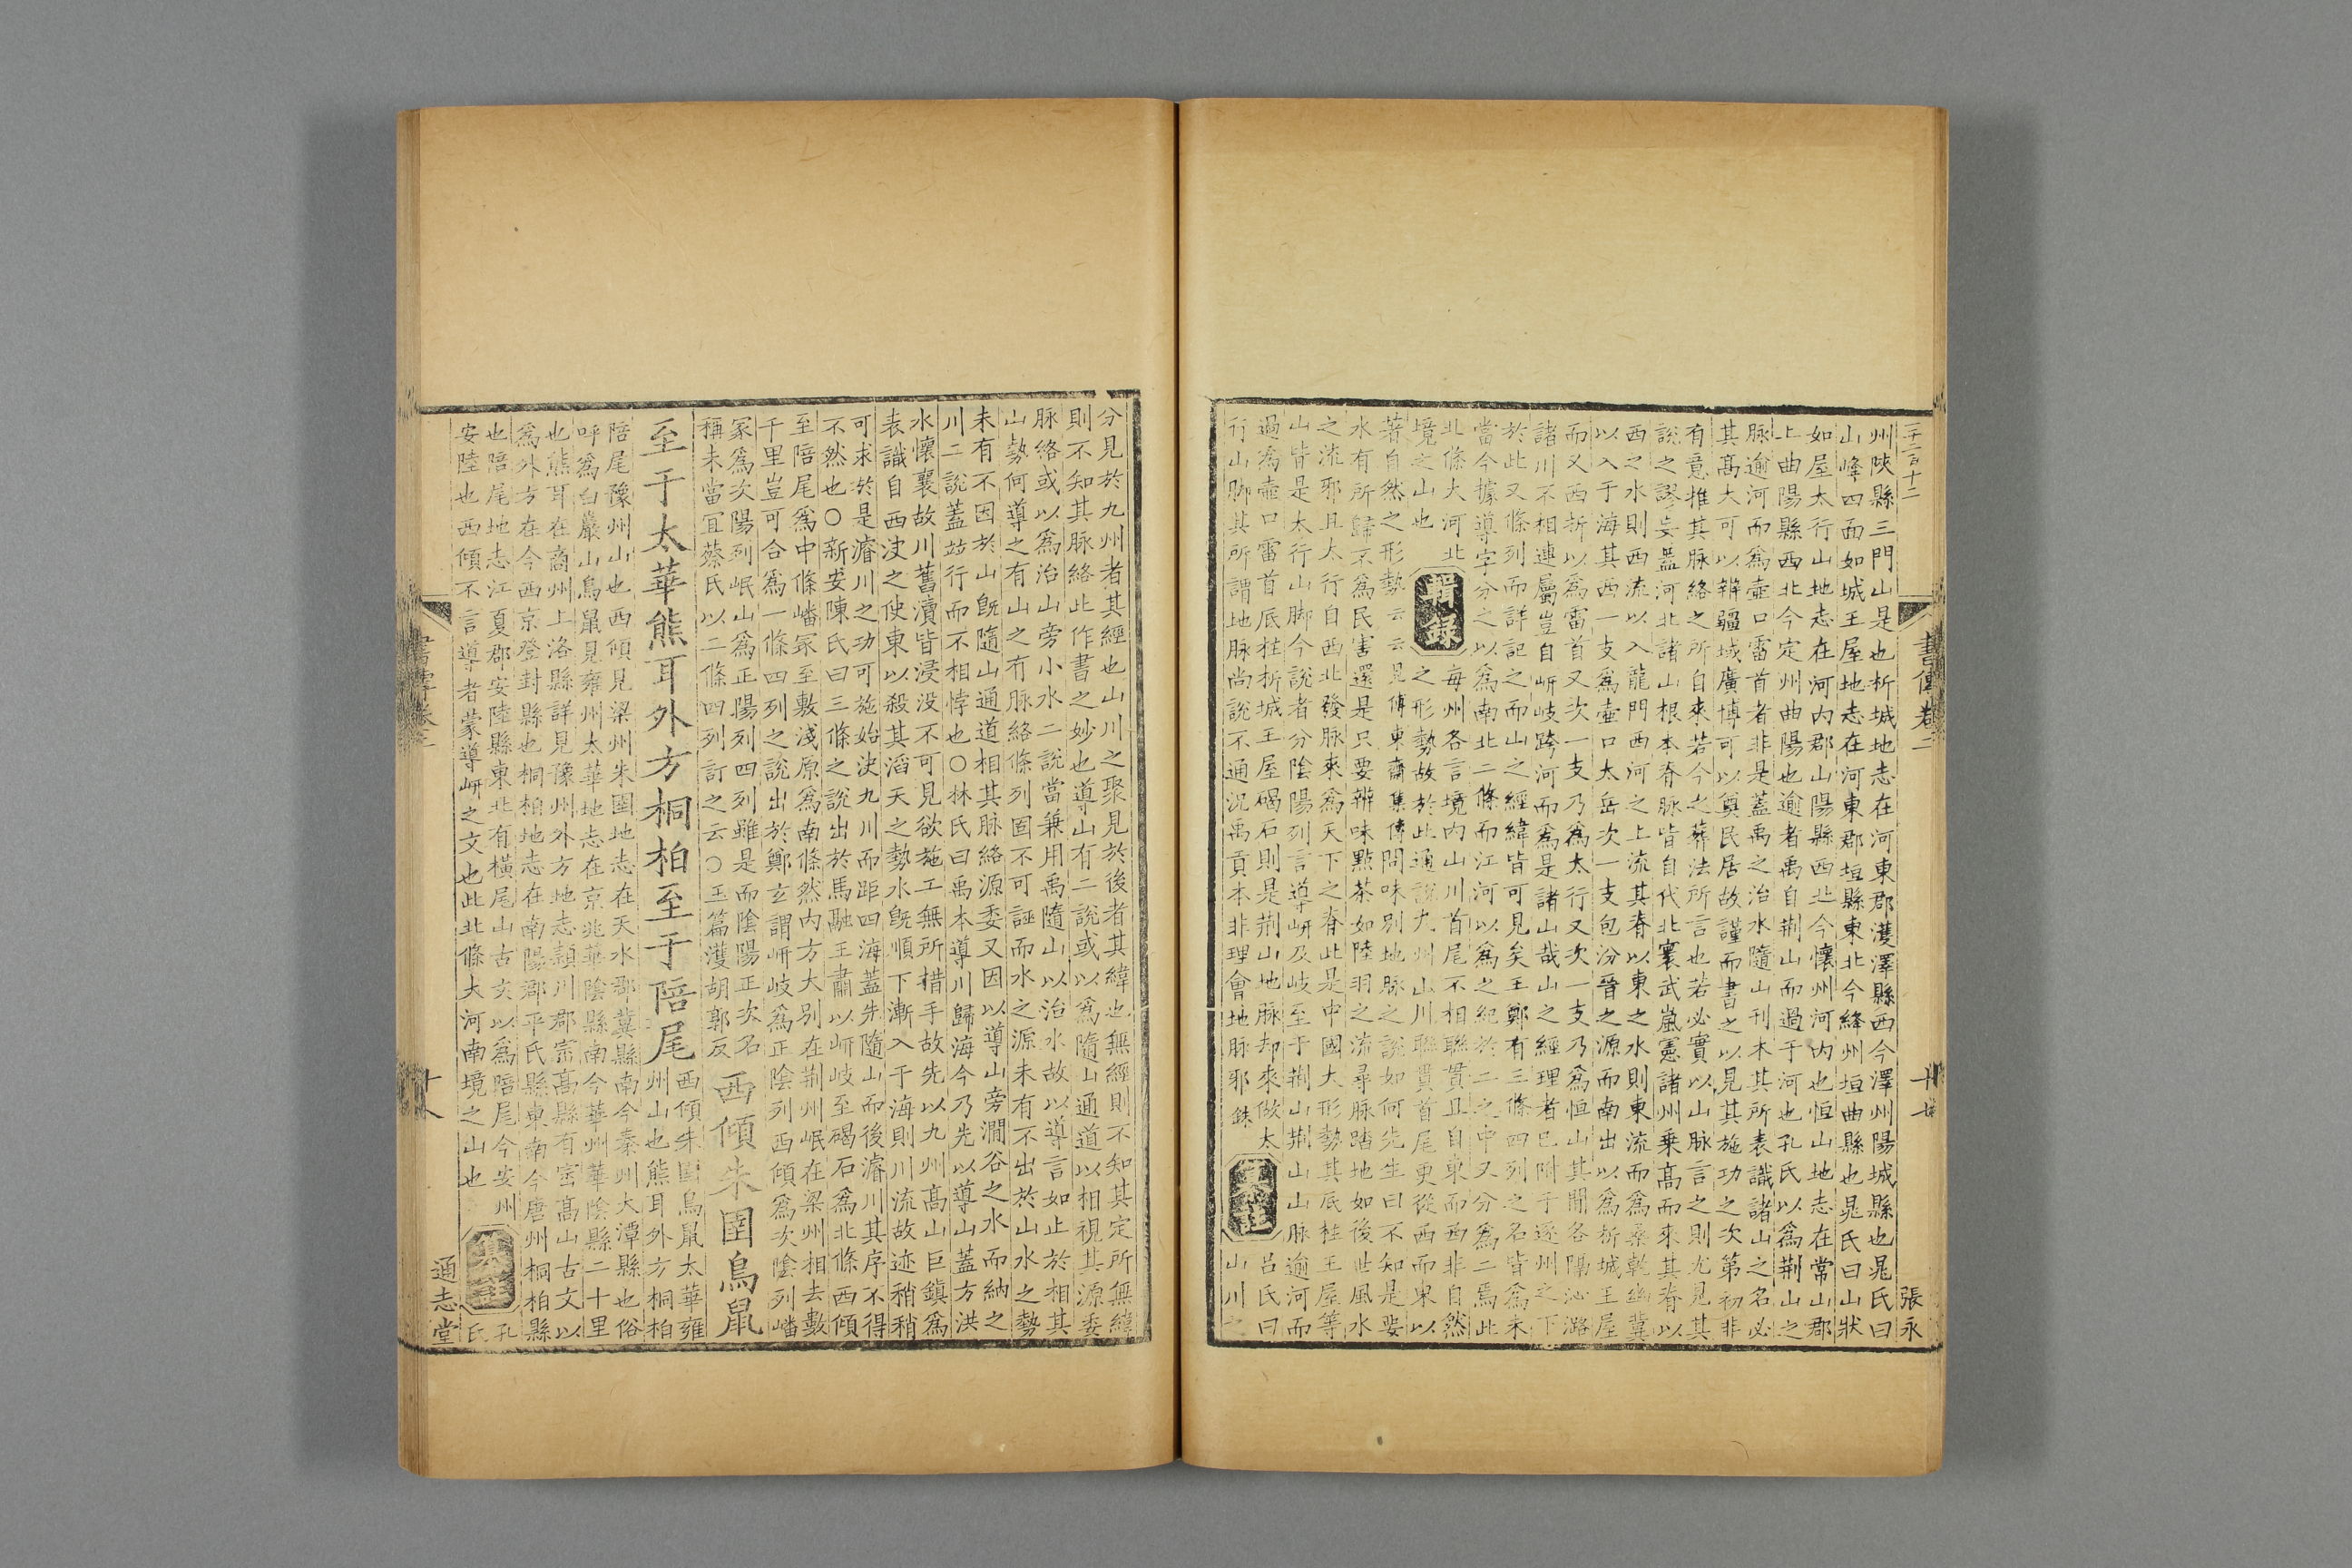 三千三百十二
書傳卷二
十七
張永
州陝縣三門山是也析城地志在河東郡濩澤縣西今澤州陽城縣也晁氏曰
山峰四面如城王屋地志在河東郡垣縣東北今絳州垣曲縣也晁氏曰山狀
如屋太行山地志在河內郡山陽縣西北今懷州河內也恒山地志在常山郡
上曲陽縣西北今定州曲陽也逾者禹自荆山而過于河也孔氏以爲荆山之
脉逾河而爲壺口雷首者非是蓋禹之治水隨山刋木其所表識諸山之名必
其髙大可以辨疆域廣博可以奠民居故謹而書之以見其施功之次第初非
有意推其脉絡之所自來若今之葬法所言也若必實以山脉言之則尤見其
說之謬妄蓋河北諸山根本脊脉皆自代北寰武嵐憲諸州乗髙而來其脊以
西之水則西流以入龍門西河之上流其脊以東之水則東流而爲桑乾幽冀
以入于海其西一支爲壺口太岳次一支包汾晉之源而南出以爲析城王屋
而又西折以爲雷首又次一支乃爲太行又次一支乃爲恒山其間各隔沁潞
諸川不相連屬豈自岍岐跨河而爲是諸山哉山之經理者已附于逐州之下
於此又條列而詳記之而山之經緯皆可見矣王鄭有三條四列之名皆爲未
當今據導字分之以爲南北二條而江河以爲之紀於二之中又分爲二焉此
北條大河北境之山也
輯錄
每州各言境內山川首尾不相聯貫且自東而西非自然
之形勢故於此通說九州山川聯貫首尾更從西而東以
著自然之形勢云云見傅東齋集傳問味別地脉之說如何先生曰不知是要
水有所歸不爲民害還是只要辨味點茶如陸羽之流尋脉踏地如後世風水
之流邪且太行自西北發脉來爲天下之脊此是中國大形勢其底柱王屋等
山皆是太行山脚今說者分陰陽列言導岍及岐至于荆山荆山山脉逾河而
過爲壺口雷首底柱析城王屋碣石則是荆山地脉却來做太
行山脚其所謂地脉尚說不通况禹貢本非理會地脉耶銖
纂註
呂氏曰
山川之
分見於九州者其經也山川之聚見於後者其緯也無經則不知其定所無緯
則不知其脉絡此作書之妙也導山有二說或以爲隨山通道以相視其源委
脉絡或以爲治山旁小水二說當兼用禹隨山以治水故以導言如止於相其
山勢何導之有山之有脉絡條列固不可誣而水之源未有不出於山水之勢
未有不因於山旣隨山通道相其脉絡源委又因以導山旁澗谷之水而納之
川二說蓋竝行而不相悖也○林氏曰禹本導川歸海今乃先以導山蓋方洪
水懷襄故川舊瀆皆浸没不可見欲施工無所措手故先以九州髙山巨鎮爲
表識自西決之使東以殺其滔天之勢水旣順下漸入于海則川流故迹稍稍
可求於是濬川之功可施始決九川而距四海蓋先隨山而後濬川其序不得
不然也○新安陳氏曰三條之說出於馬融王肅以岍岐至碣石爲北條西傾
至陪尾爲中條嶓冢至敷淺原爲南條然内方大别在荆州岷在梁州相去數
千里豈可合爲一條四列之說出於鄭玄謂岍岐爲正陰列西傾爲次陰列嶓
冢爲次陽列岷山爲正陽列四列雖是而陰陽正次名
稱未當宜蔡氏以二條四列訂之云○玉篇濩胡郭反
西傾朱圉鳥鼠
至于太華熊耳外方桐柏至于陪尾
西傾朱圉鳥鼠太華雍
州山也熊耳外方桐柏
陪尾豫州山也西傾見梁州朱圉地志在天水郡冀縣南今秦州大潭縣也俗
呼爲白巖山鳥鼠見雍州太華地志在京兆華隂縣南今華州華隂縣二十里
也熊耳在商州上洛縣詳見豫州外方地志潁川郡崈髙縣有崈髙山古文以
爲外方在今西京登封縣也桐柏地志在南陽郡平氏縣東南今唐州桐柏縣
也陪尾地志江夏郡安陸縣東北有橫尾山古文以爲陪尾今安州
安陸也西傾不言導者蒙導岍之文也此北條大河南境之山也
纂註
孔
氏
書傳卷二
十八
通志堂